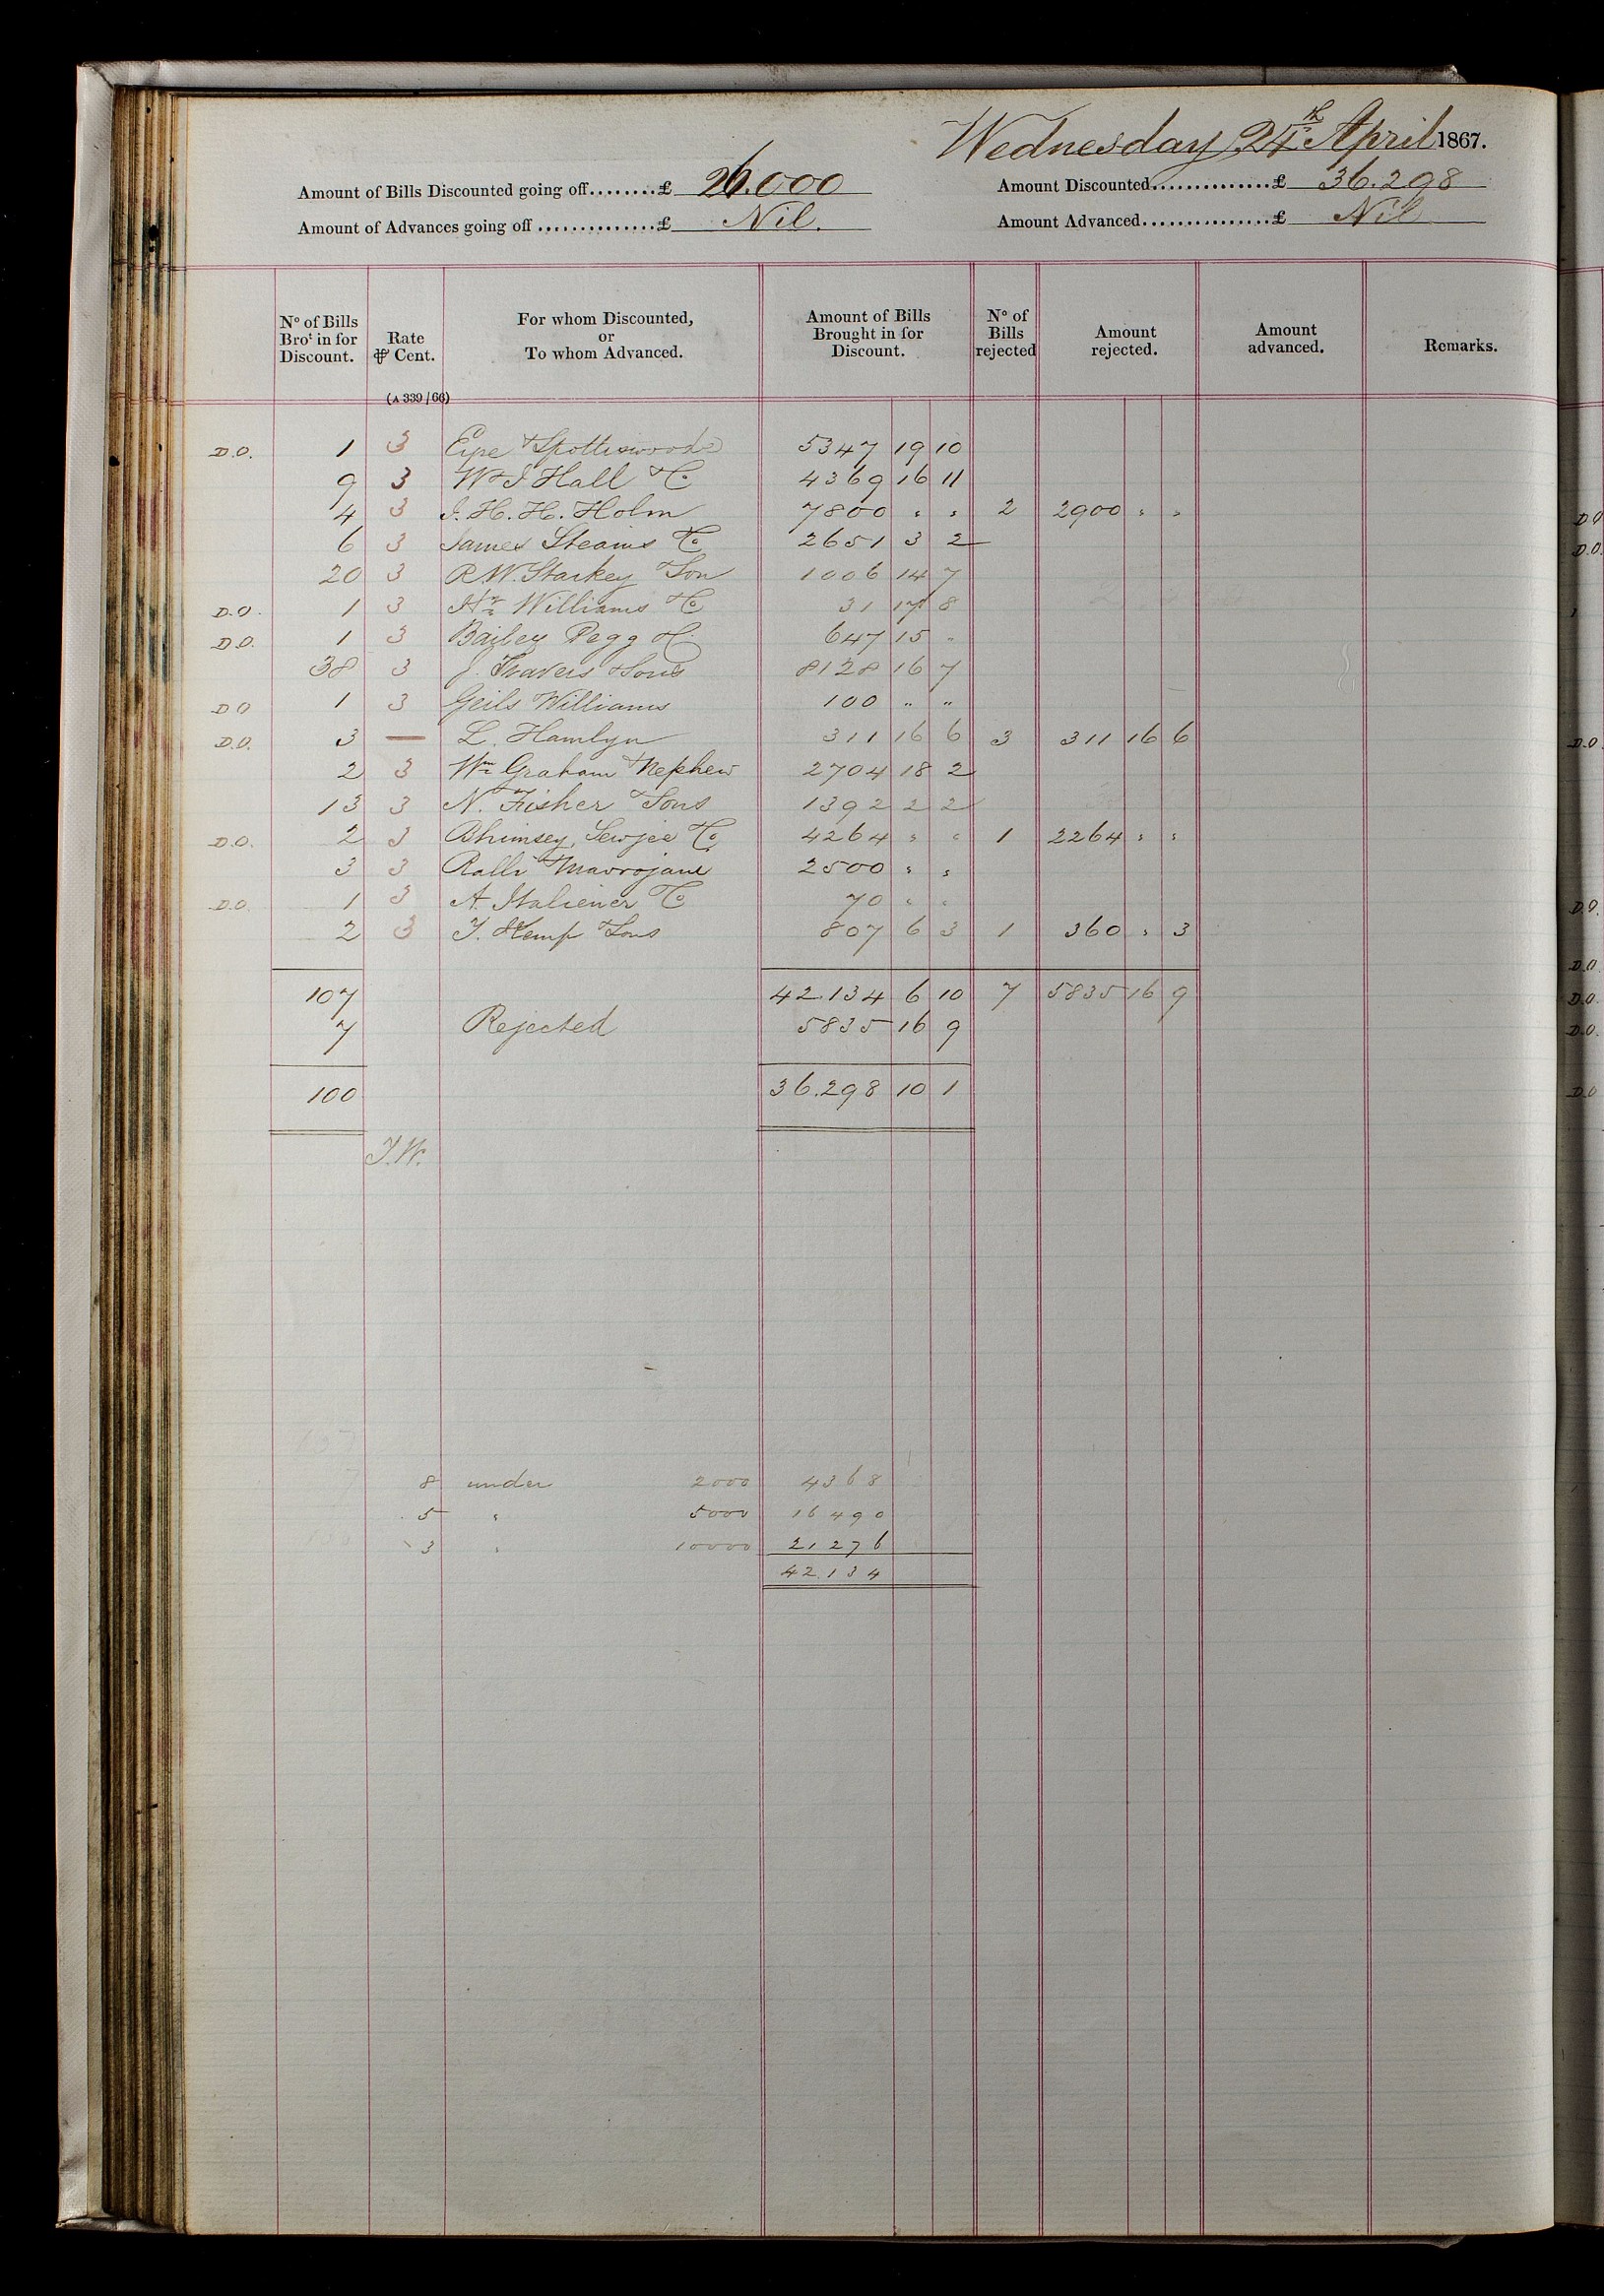 Wednesday 24th April 1867.
Amount of Bills Discounted going off........£ 26.000
Amount Discounted..............£ 36.298
Amount of Advances going off..............£ Nil.
Amount Advanced...............£ Nil
No of Bills Brot in for Discount.
Rate ⅌ Cent.
For whom Discounted, or To whom Advanced.
Amount of Bills Brought in for Discount.
No of Bills rejected
Amount rejected.
Amount advanced.
Remarks.
(A 339/66)
D.O. 1 3 Eyre & Spottiswoode 5347 19 10
9 3 W & J Hall & Co 4369 16 11
4 3 J. H. H. Holm 7800 " " 2 2900 " "
6 3 James Steains & Co 2651 3 2
20 3 R.W. Starkey & Son 1006 14 7
D.O. 1 3 Hy Williams & Co 31 17 8
D.O. 1 3 Bailey Pegg & Co. 647 15 "
38 3 J. Travers & Sons 8128 16 7
D.O 1 3 Geils Williams 100 " "
D.O. 3 — L. Hamlyn 311 16 6 3 311 16 6
2 3 Wm Graham & Nephew 2704 18 2
13 3 N. Fisher & Sons 1392 2 2
D.O. 2 3 Bhimsey, Sewjee & Co 4264 " " 1 2264 " "
3 3 Ralli & Mavrojani 2500 " "
D.O. 1 3 A. Italiener & Co 70 " "
2 3 T. Kemp & Sons 807 6 3 1 360 " 3
107 42.134 6 10 7 5835 16 9
7 Rejected 5835 16 9
100 36.298 10 1
J.W.
8 under 2000 4368
5 " 5000 16490
3 " 10000 21276
42.134